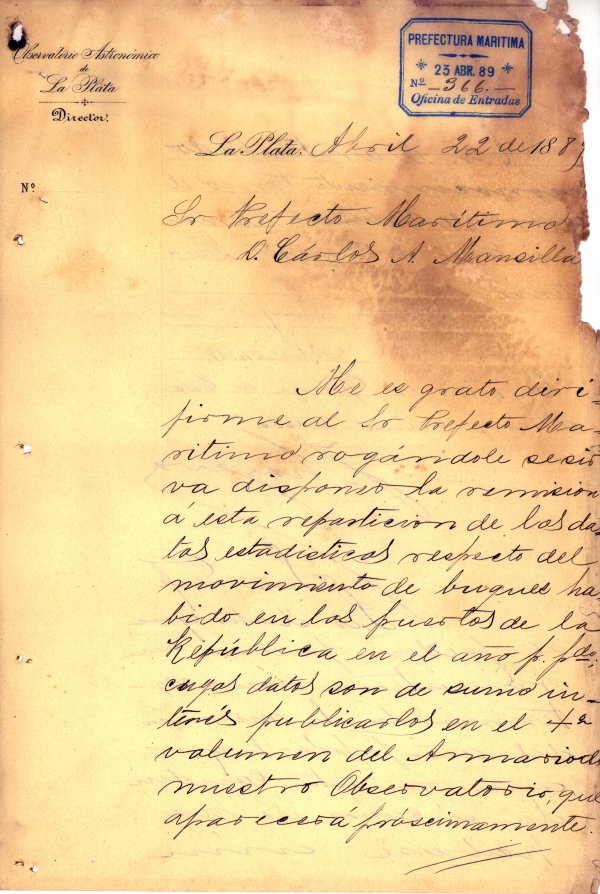 Observatorio Astronómico
de
La Plata
Director.
PREFECTURA MARITIMA
23 ABR. 89
Nº 366.-
Oficina de Entradas
La Plata, Abril 22 de 1889
Nº
Sr Prefecto Maritimo
D. Cárlos A. Mansilla
Me es grato diri-
jirme al Sr Prefecto Ma-
ritimo rogándole se sir
va disponer la remision
á esta reparticion de los da-
tos estadisticos respecto del
movimiento de buques ha-
bido en los puertos de la
República en el año p. pdo,
cuyos datos son de sumo in-
terés publicarlos en el 4º
volumen del Annario de
nuestro Observatorio, que
aparecerá próscimamente.